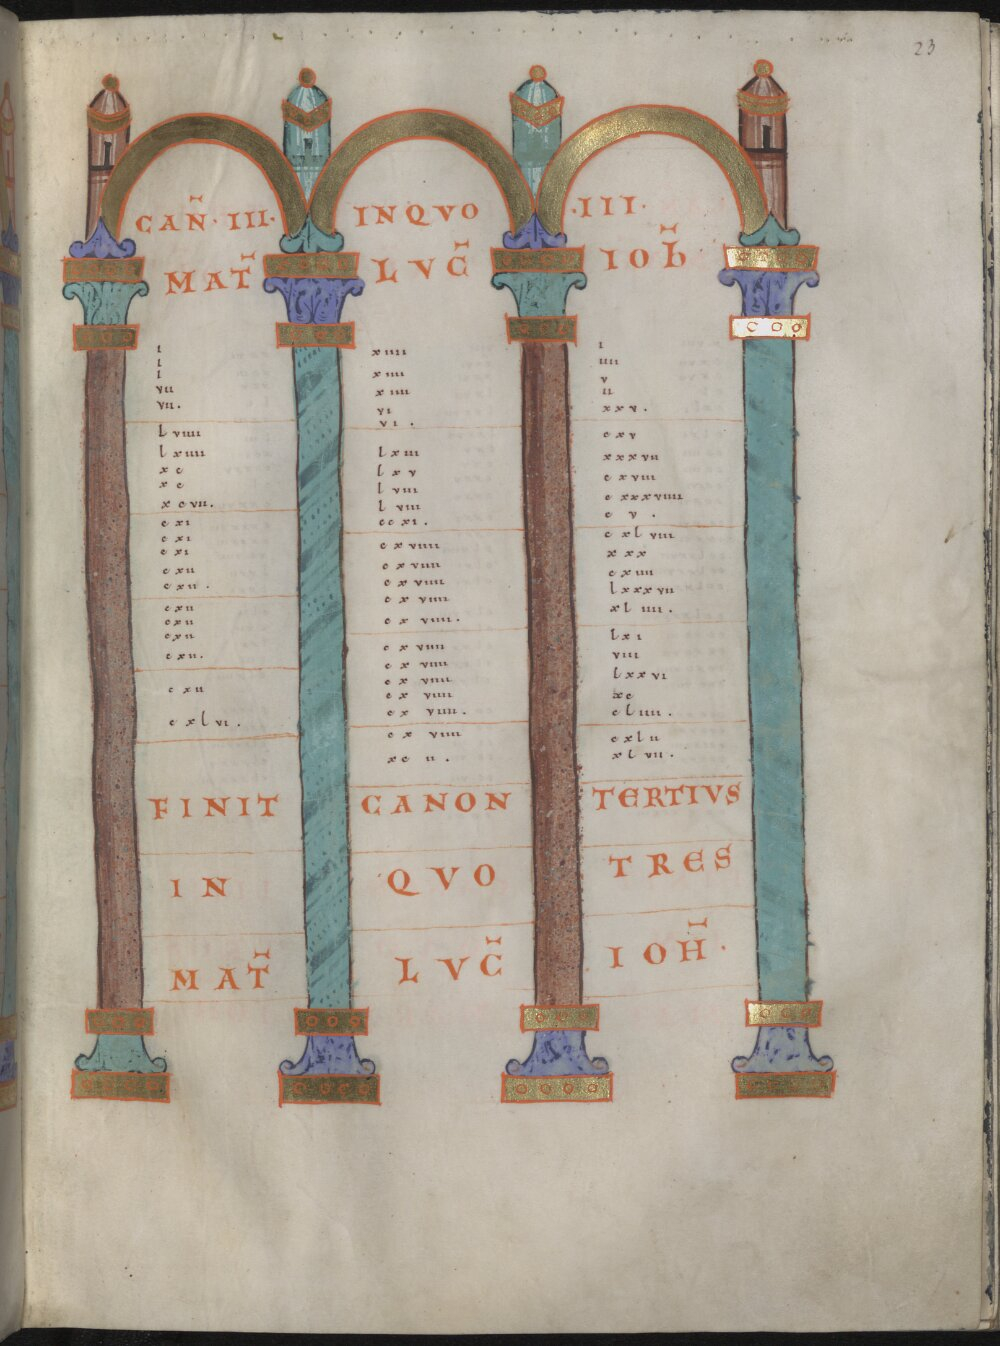 CAÑ · III · INQVO · III ·
MAT̄ LVC̄ IOh̄
i
i
i
vii
vii.
lviiii
lxiiii
xc
xc
xcvii.
cxi
cxi
cxi
cxii
cxii.
cxii
cxii
cxii
cxii.
cxii
cxlvi.
xiiii
xiiii
xiiii
vi
vi.
lxiii
lxv
lviii
lviii
ccxi.
cxviiii
cxviiii
cxviiii
cxviiii
cxviiii.
cxviiii
cxviiii
cxviiii
cxviiii
cxviiii.
cxviiii
xcii.
i
iii
v
ii
xxv.
cxv
xxxvii
cxviii
cxxxviiii
cv.
cxlviii
xxx
cxiiii
lxxxvii
xliiii.
lxi
viii
lxxvi
xc
cliiii.
cxlii
xlvii.
FINIT CANON TERTIVS
IN QVO TRES
MAT̄ LVC̄ IOH̄ ·
23